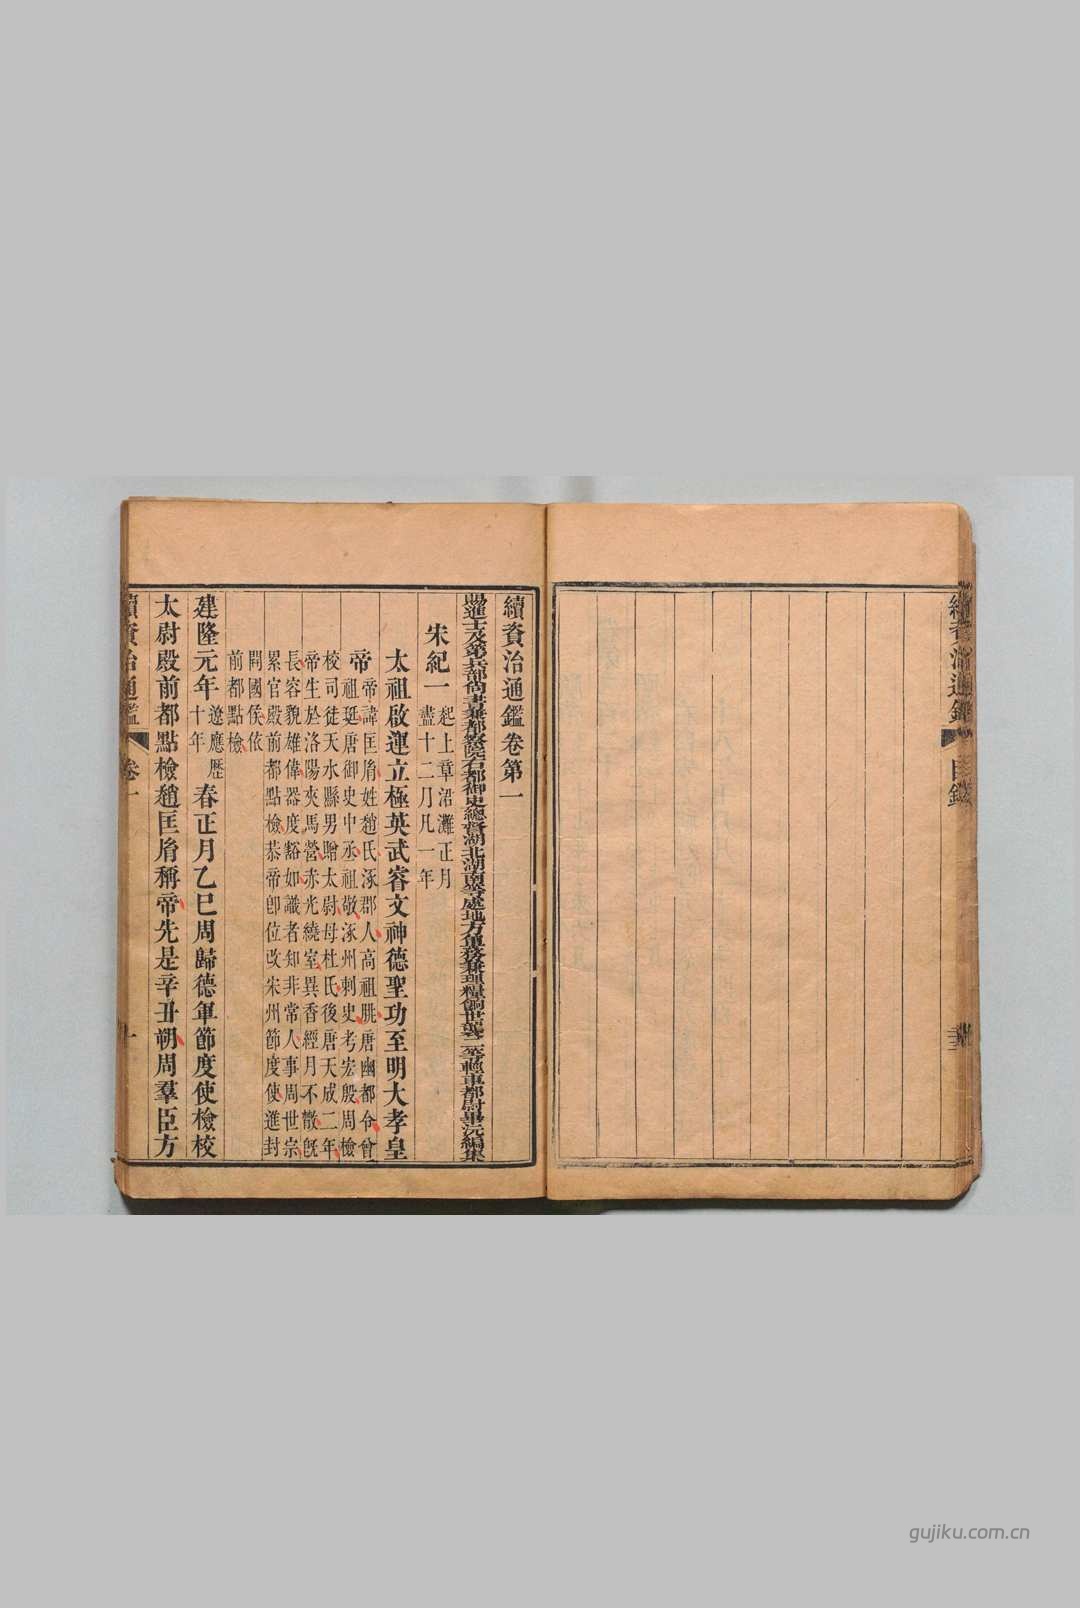 續資治通鑑 目錄
續資治通鑑卷第一
賜進士及第兵部尚書兼都察院右都御史總督湖北湖南等處地方軍務兼理糧餉世襲二等輕車都尉畢沅編集
宋紀一 起上章涒灘正月
盡十二月凡一年
太祖啟運立極英武睿文神德聖功至明大孝皇
帝 帝諱匡胤姓趙氏涿郡人高祖朓唐幽都令曾
祖珽唐御史中丞祖敬涿州刺史考宏殷周檢
校司徒天水縣男贈太尉母杜氏後唐天成二年
帝生於洛陽夾馬營赤光繞室異香經月不散旣
長容貌雄偉器度豁如識者知非常人事周世宗
累官殿前都點檢恭帝卽位改宋州節度使進封
開國侯依
前都點檢
建隆元年 遼應歷十年 春正月乙巳周歸德軍節度使檢校
太尉殿前都點檢趙匡胤稱帝先是辛丑朔周羣臣方
續資治通鑑 卷一 一
gujiku.com.cn